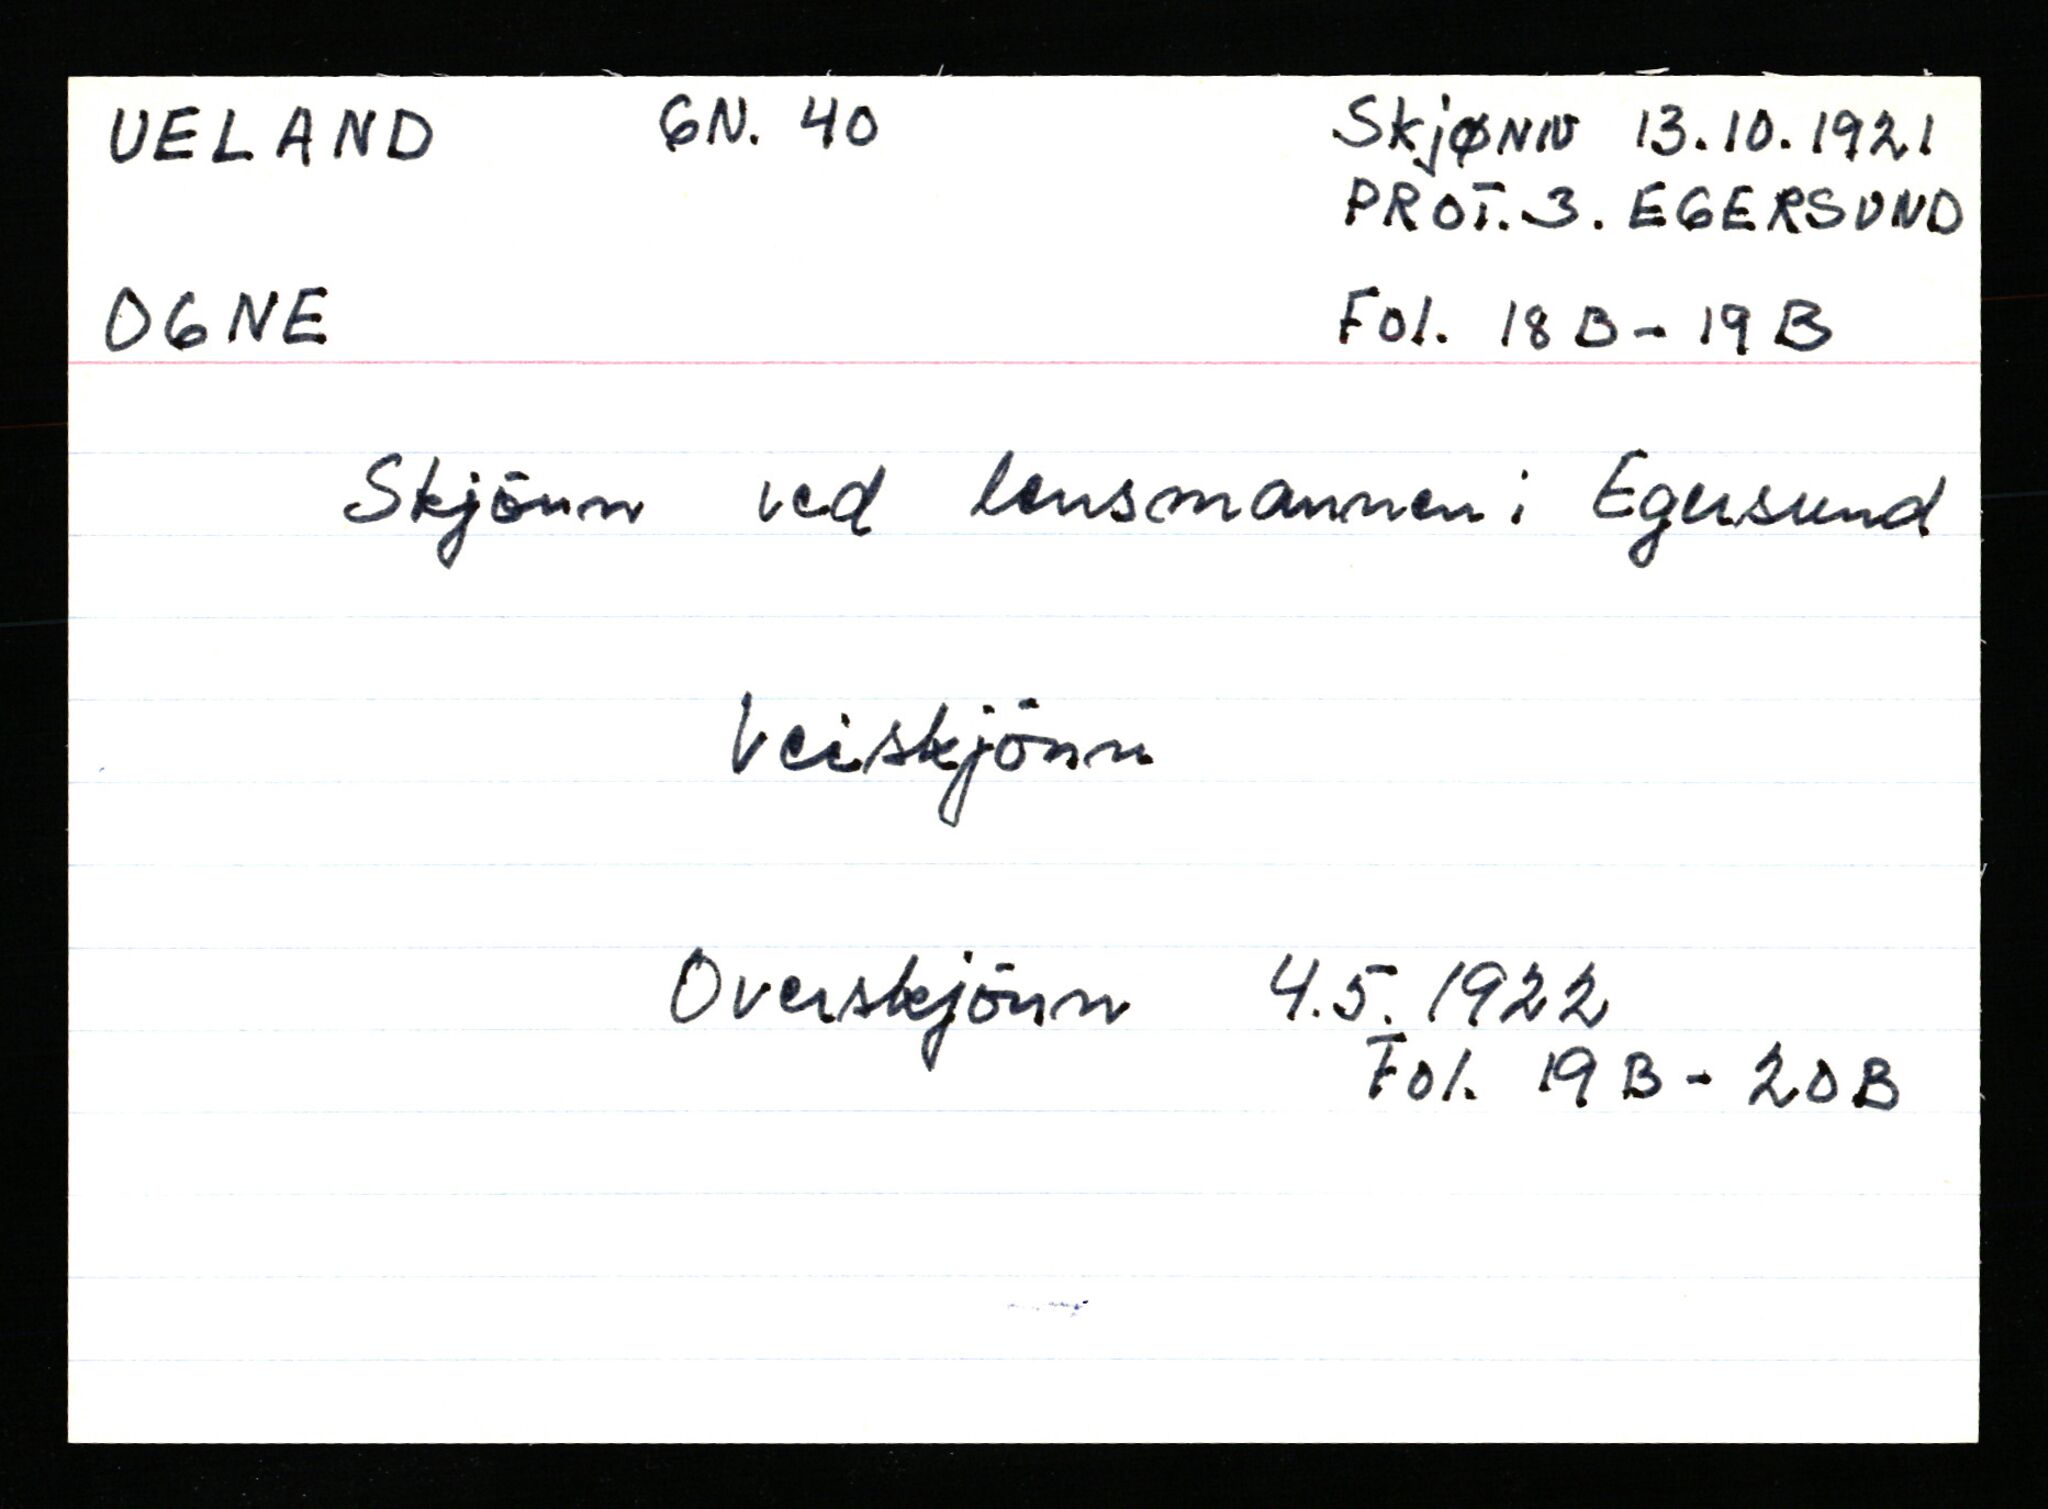 UELAND GN. 40 Skjønn 13.10.1921
PROT. 3. EGERSUND
OGNE Fol. 18B - 19B
Skjönn ved lensmannen i Egersund
Veiskjönn
Overskjönn 4.5.1922
Fol. 19B - 20B